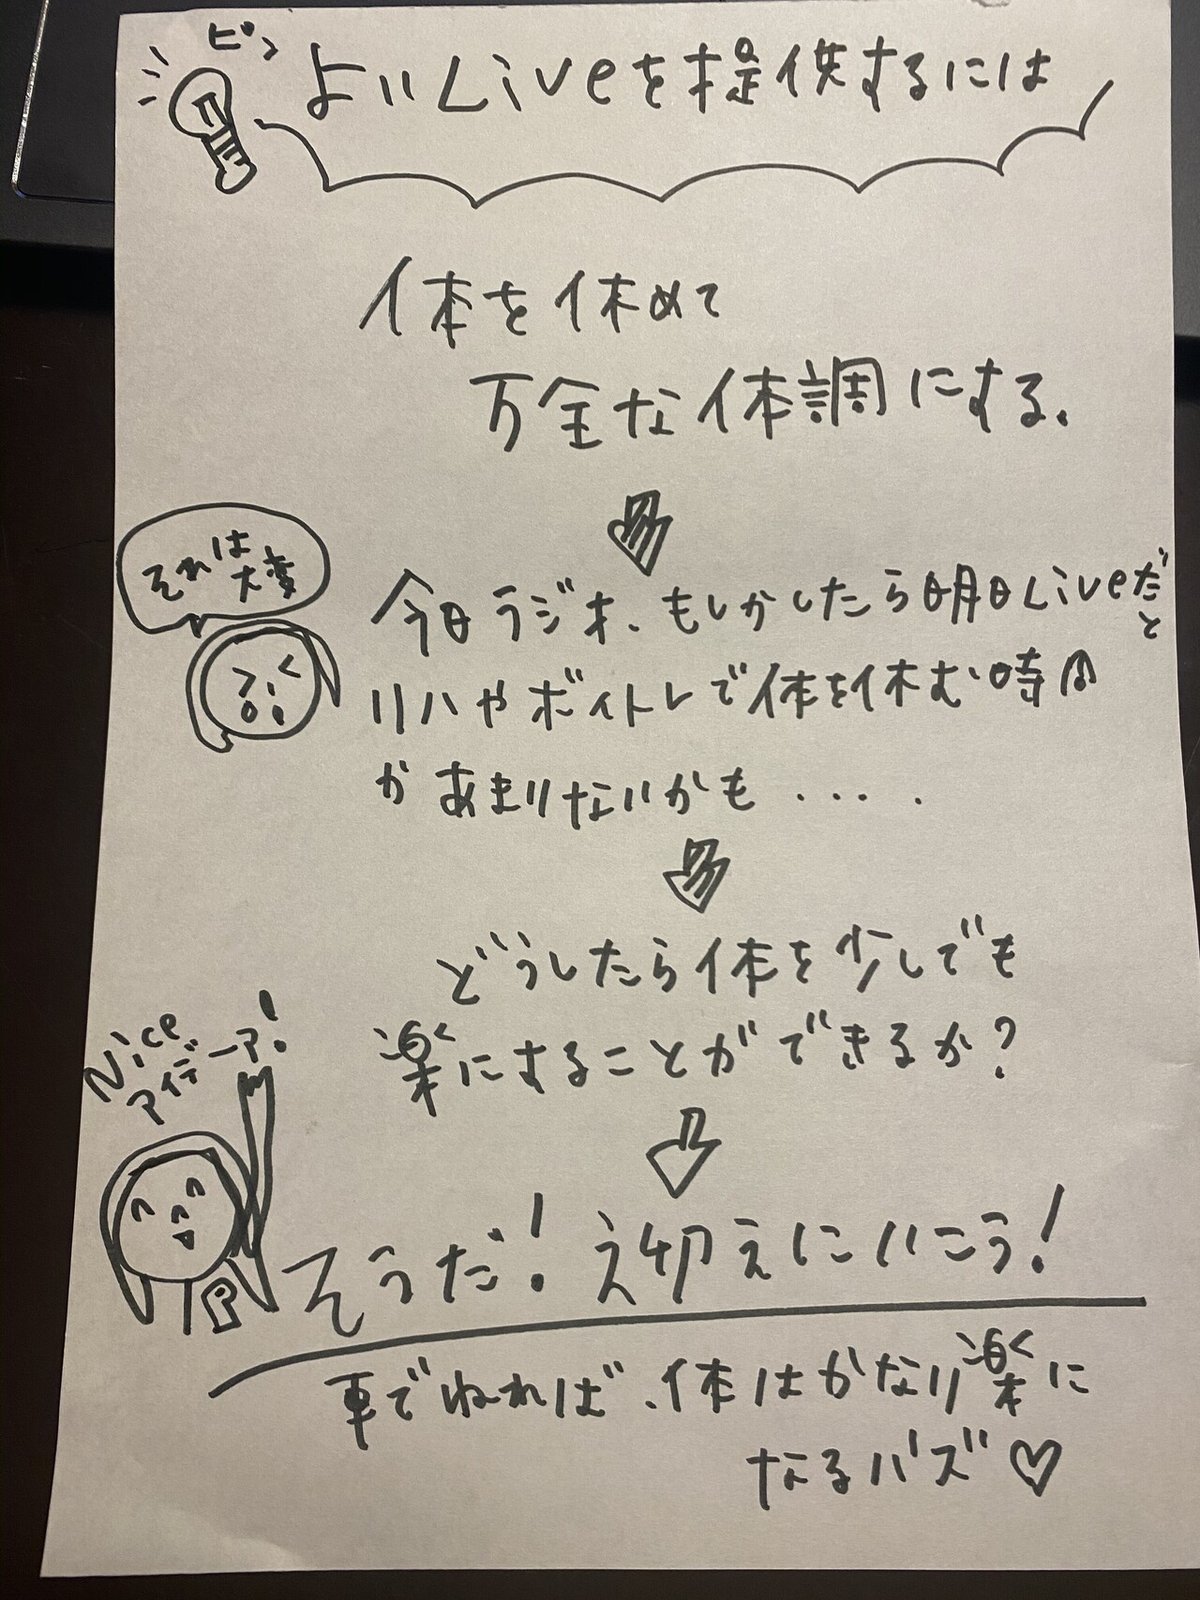 ピン
よいLiveを提供するには
体を休めて
万全な体調にする。
それは
大変
今日ラジオ、もしかしたら明日Liveだと
リハやボイトレで体を休む時間
があまりないかも・・・・
どうしたら体を少しでも
楽にすることができるか?
Nice
アイデーア!
そうだ!
にいこう!
P
車でねれば、体はかなり楽に
なるハズ♡